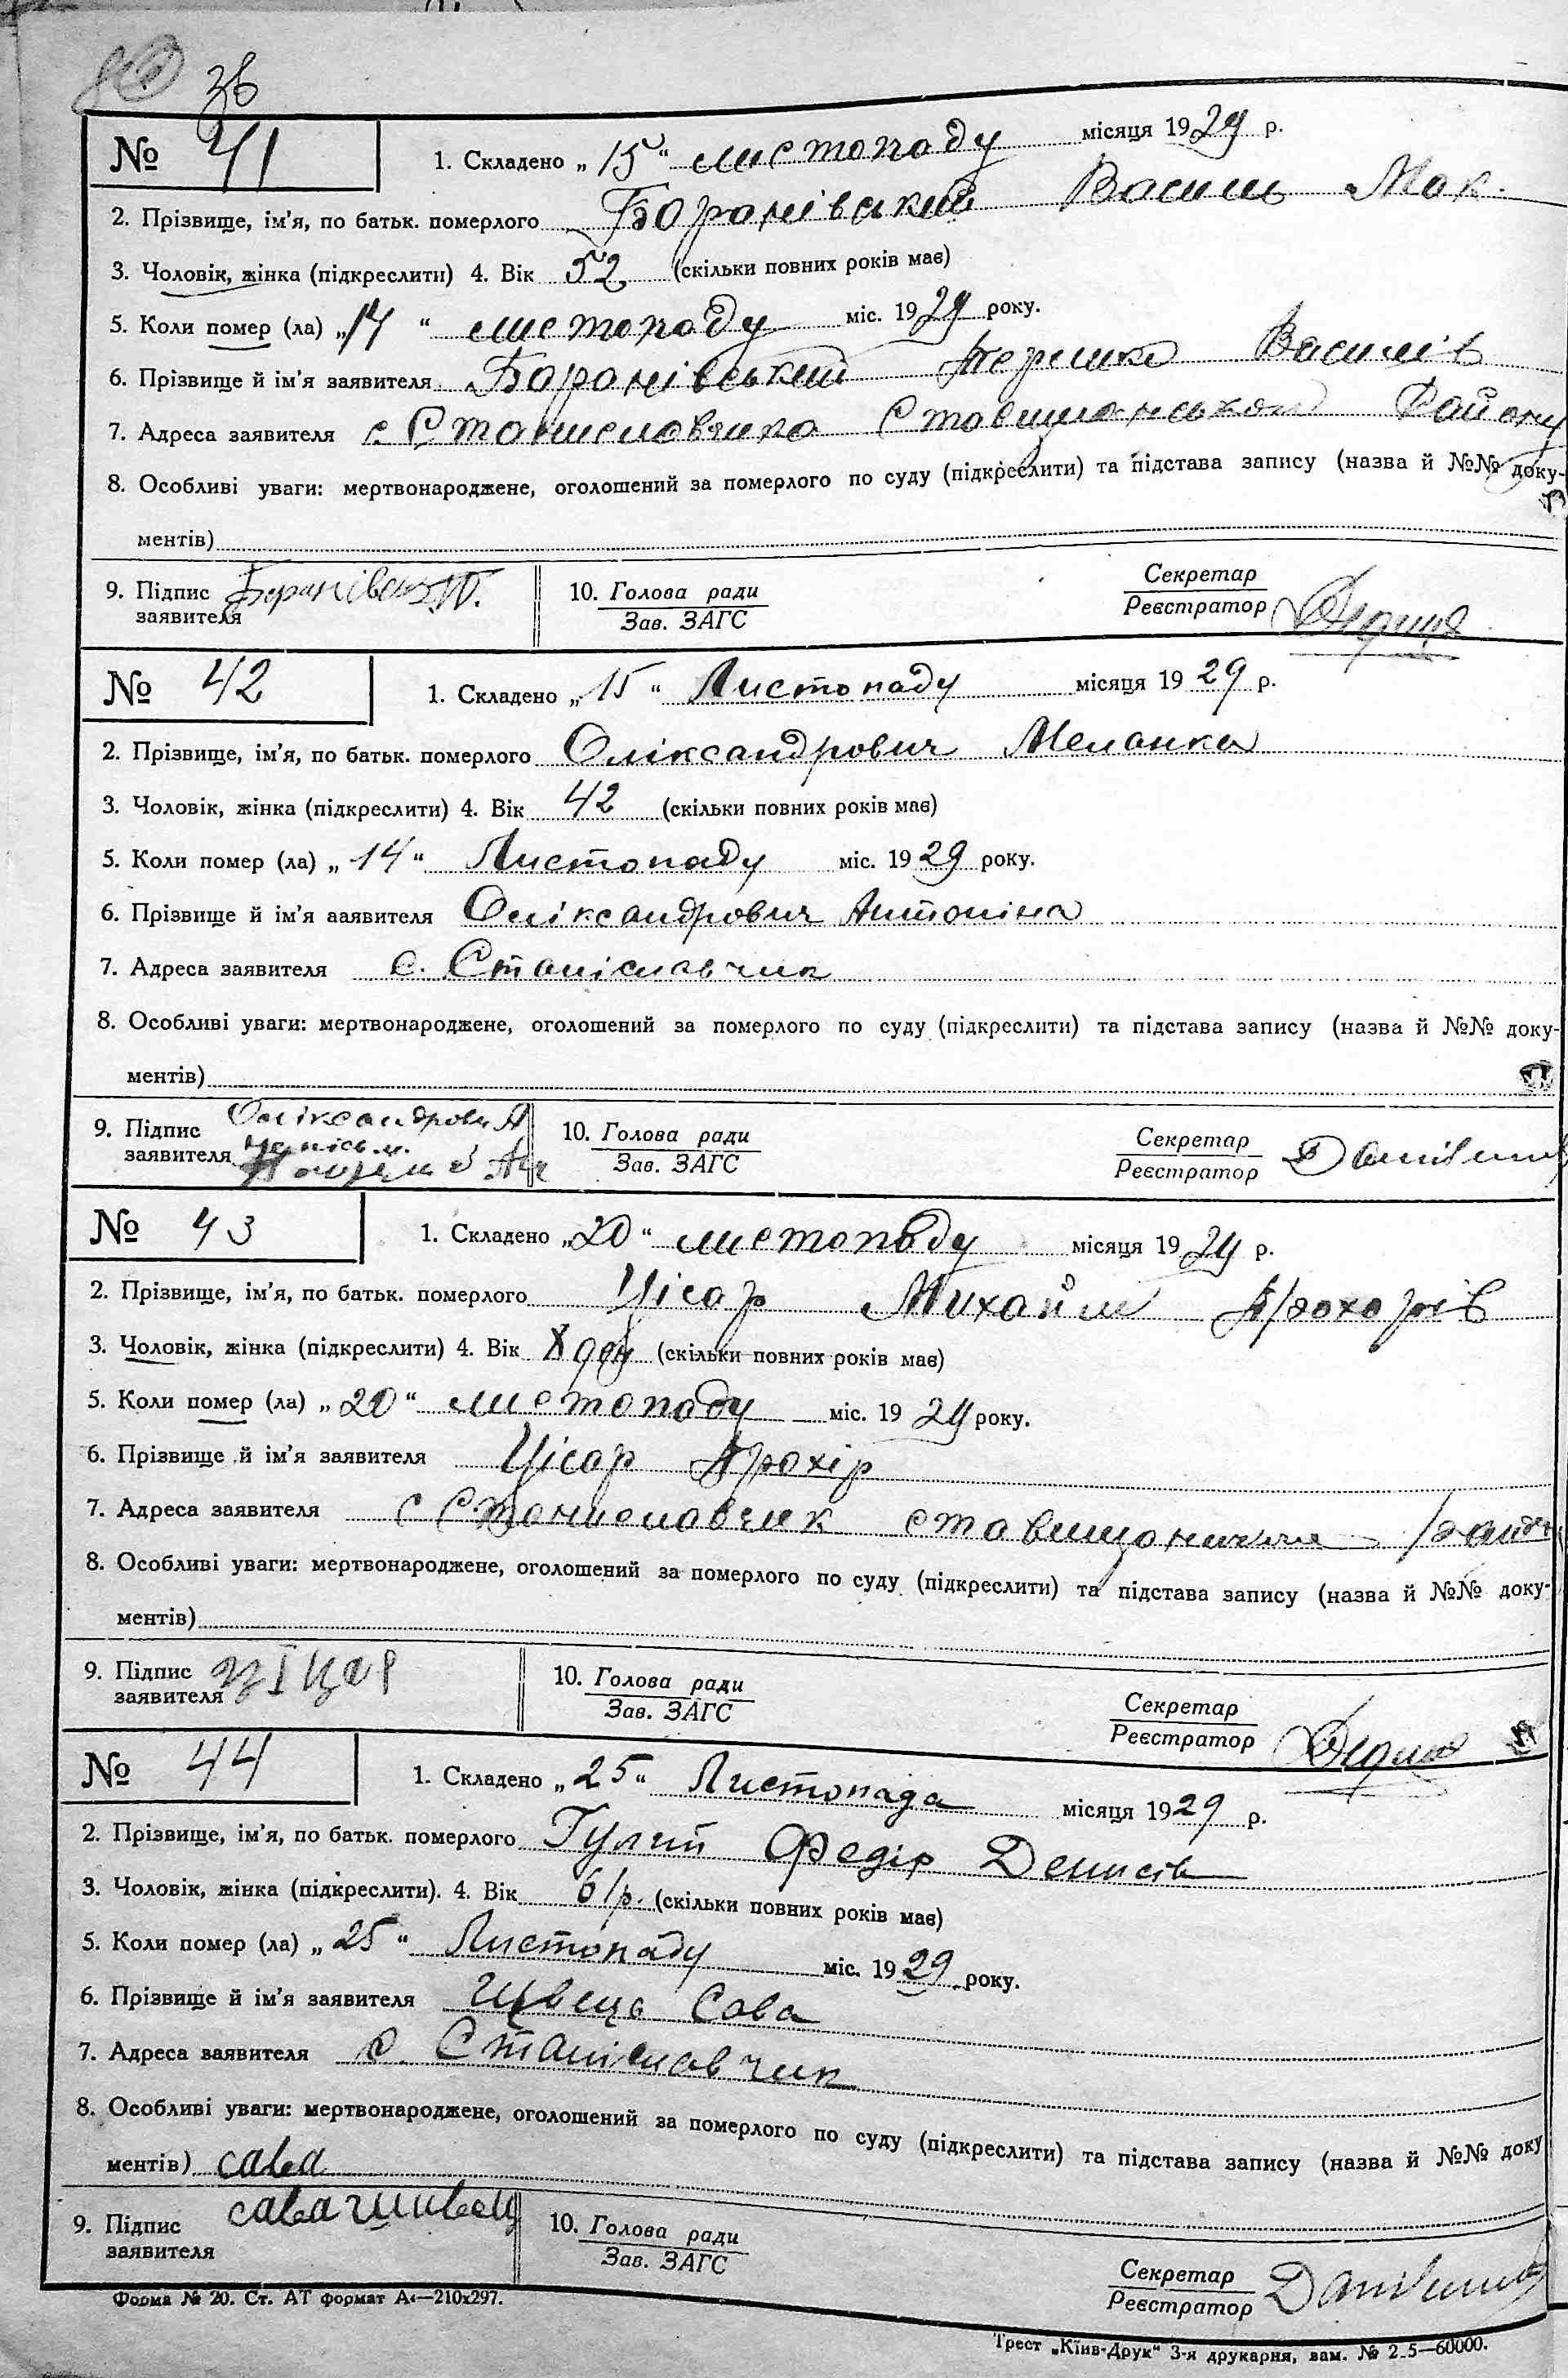 36
№ 41
1. Складено „15“ листопаду місяця 1929 р.
2. Прізвище, ім’я, по батьк. померлого Боромівський Василь Мак.
3. Чоловік, жінка (підкреслити) 4. Вік 52 (скільки повних років має)
5. Коли помер (ла) „14“ листопаду міс. 1929 року.
6. Прізвище й ім’я заявителя Василів
7. Адреса заявителя с Району
8. Особливі уваги: мертвонароджене, оголошений за померлого по суду (підкреслити) та підстава запису (назва й №№ доку-
ментів)
9. Підпис
заявителя
10. Голова ради
Зав. ЗАГС
Секретар
Реєстратор
№ 42
1. Складено „15“ Листопаду місяця 1929 р.
2. Прізвище, ім’я, по батьк. померлого Оліксандрович Меланка
3. Чоловік, жінка (підкреслити) 4. Вік 42 (скільки повних років має)
5. Коли помер (ла) „14“ Листопаду міс. 1929 року.
6. Прізвище й ім’я заявителя Оліксандрович Антоніна
7. Адреса заявителя с. Станіславчик
8. Особливі уваги: мертвонароджене, оголошений за померлого по суду (підкреслити) та підстава запису (назва й №№ доку-
ментів)
9. Підпис Оліксандрович А
заявителя
10. Голова ради
Зав. ЗАГС
Секретар
Реєстратор
№ 43
1. Складено „20“ листопаду місяця 1929 р.
2. Прізвище, ім’я, по батьк. померлого Цісар Михайло Прохорів
3. Чоловік, жінка (підкреслити) 4. Вік (скільки повних років має)
5. Коли помер (ла) „20“ листопаду міс. 1929 року.
6. Прізвище й ім’я заявителя Цісар Прохір
7. Адреса заявителя с Станиславчик
8. Особливі уваги: мертвонароджене, оголошений за померлого по суду (підкреслити) та підстава запису (назва й №№ доку-
ментів)
9. Підпис ціцар
заявителя
10. Голова ради
Зав. ЗАГС
Секретар
Реєстратор
№ 44
1. Складено „25“ Листопада місяця 1929 р.
2. Прізвище, ім’я, по батьк. померлого Гулий Федір Денисів
3. Чоловік, жінка (підкреслити). 4. Вік 61р. (скільки повних років має)
5. Коли помер (ла) „25“ Листопаду міс. 1929 року.
6. Прізвище й ім’я заявителя Швець Сава
7. Адреса заявителя с. Станіславчик
8. Особливі уваги: мертвонароджене, оголошений за померлого по суду (підкреслити) та підстава запису (назва й №№ доку
ментів) сава
9. Підпис сава
заявителя
10. Голова ради
Зав. ЗАГС
Секретар
Реєстратор
Форма № 20. Ст. АТ формат А4—210х297.
Трест „Київ-Друк“ 3-я друкарня, зам. № 2.5—60000.